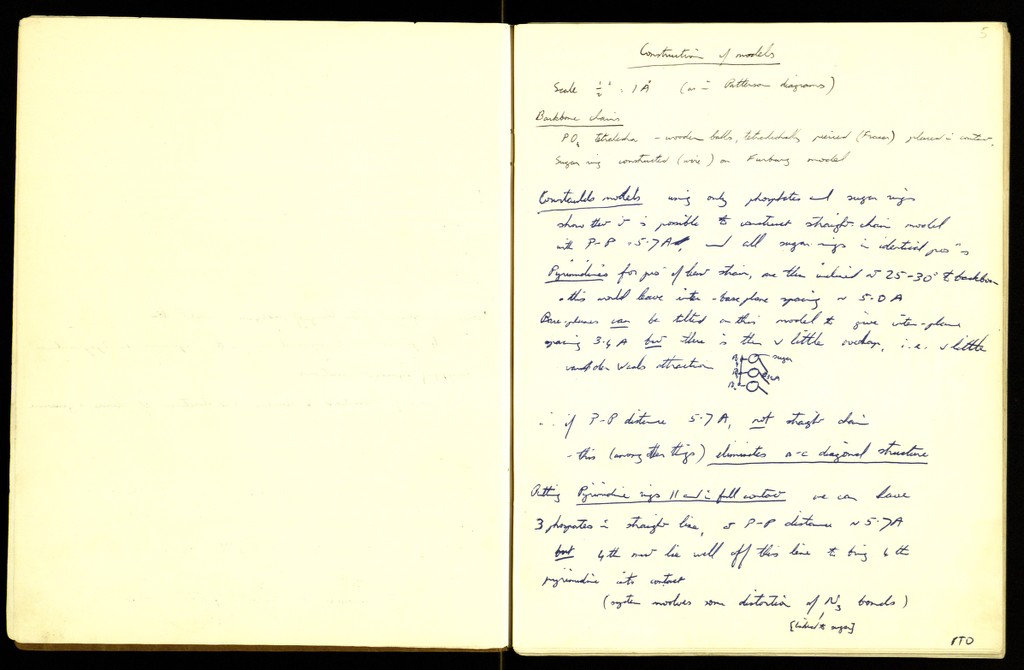 5
Construction of models
Scale ½" = 1Å (as in Patterson diagrams)
Backbone chains
PO4 tetrahedra - wooden balls, tetrahedrally pierced (Fraser) placed in contact.
Sugar ring constructed (wire) on Furberg model
Constructed models using only phosphates and sugar rings
show that it is possible to construct straight-chain model
with P-P = 5.7 A, and all sugar rings in identical pos'ns
Pyrimidines for pos' of least strain, are then inclined at 25-30° to backbone
this would leave inter-base plane spacing ~ 5.0 A
Base-planes can be tilted on this model to give inter-plane
spacing 3.4 A but there is then v little overlap, i.e. v little
van der Waals attraction
sugar
∴ if P-P distance 5.7 A, not straight chain
- this (among other things) eliminates a-c diagonal structure
Putting Pyrimidine rings || and in full contact we can have
3 phosphates in straight line, at P-P distance ~ 5.7 A
but 4th must lie well off this line to bring 4th
pyrimidine into contact
(system involves some distortion of N3 bonds)
[linked to sugar]
PTO